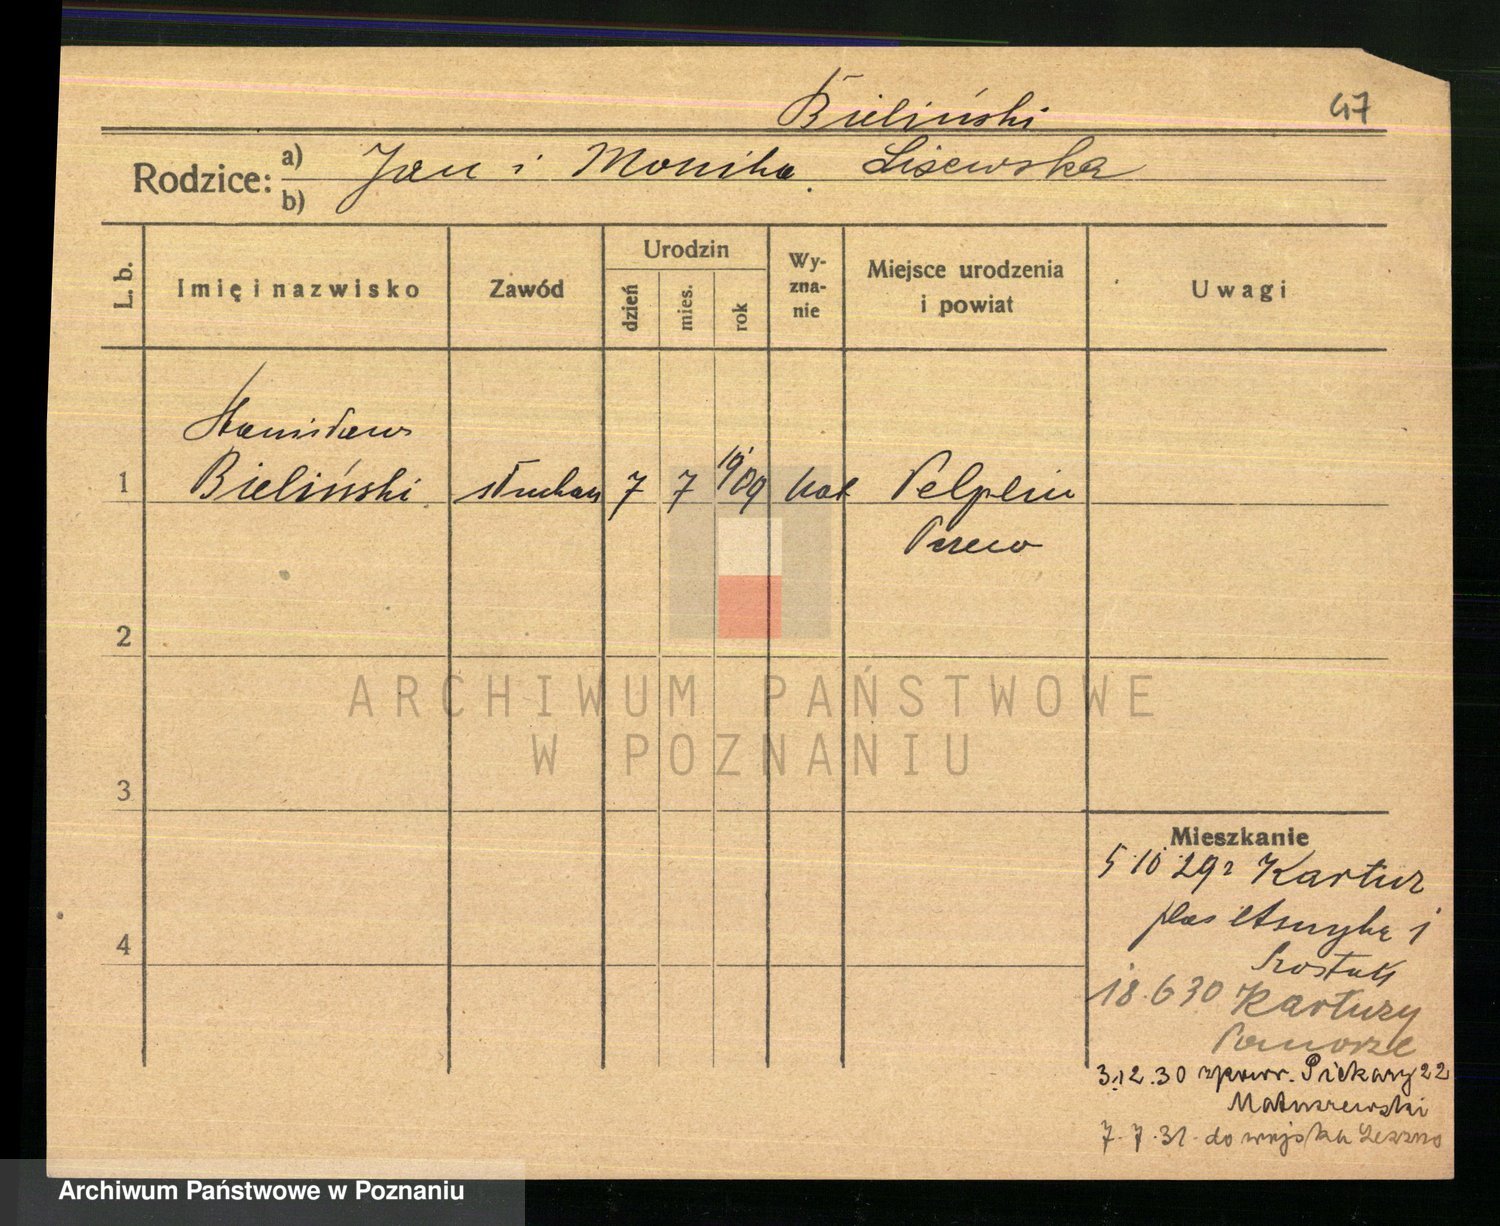 Bieliński 47
Rodzice: a) Jan i Monika Lisewska
b)
L. b. Imię i nazwisko Zawód Urodzin dzień mies. rok Wy-zna-nie Miejsce urodzenia i powiat Uwagi
Stanisław
1 Bieliński słuchacz 7 7 19/09 kat Pelplin
Tczew
2
ARCHIWUM PAŃSTWOWE
W POZNANIU
3
Mieszkanie
5 10 29 r Kartuz
plac 1
4
18.6 30 Kartuzy
Pomorze
3.12.30 zpowr. Piekary 22
Matuszewski
7.7.31. do wojska Leszno
Archiwum Państwowe w Poznaniu